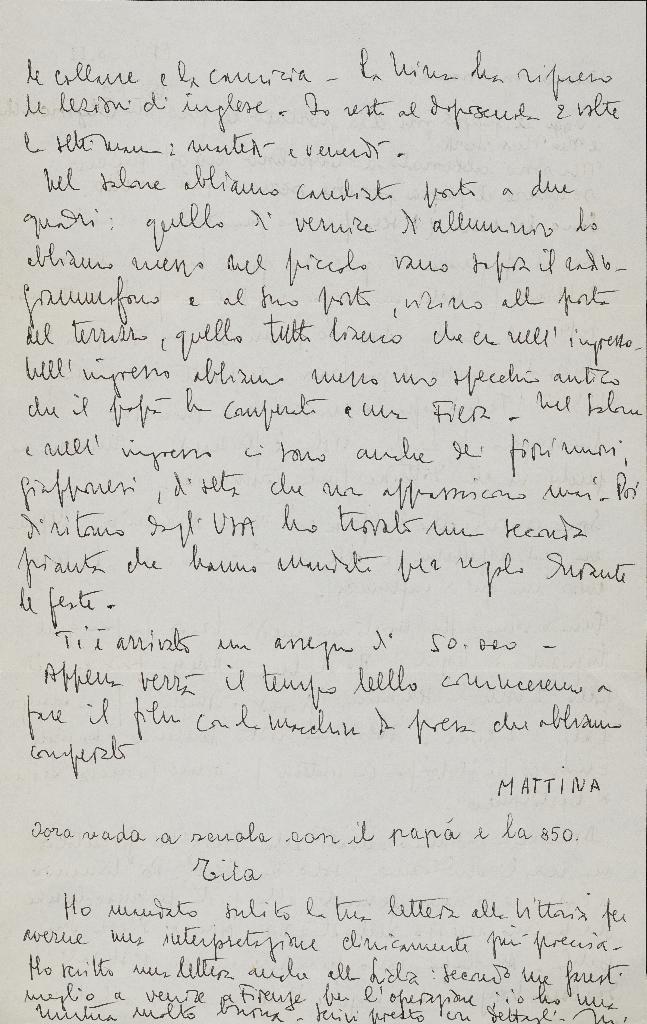 le collane e la camicia – La Nina ha ripreso
le lezioni di inglese. Io resto al doposcuola 2 volte
la settimana: martedì e venerdì.
Nel salone abbiamo cambiato posto a due
quadri: quello di vernice di alluminio lo
abbiamo messo nel piccolo vano sopra il radio-
grammofono e al suo posto, vicino alla porta
del terrazzo, quello tutto bianco che era nell'ingresso.
Nell'ingresso abbiamo messo uno specchio antico
che il papà ha comperato a una Fiera – Nel salone
e nell'ingresso ci sono anche dei fiori nuovi,
giapponesi, di seta che non appassiscono mai – Poi
di ritorno dagli USA ho trovato una seconda
pianta che hanno mandato per regalo durante
le feste.
Ti è arrivato un assegno di 50.000 –
Appena verrà il tempo bello cominceremo a
fare il film con la macchina da presa che abbiamo
comperato
MATTINA
Ora vado a scuola con il papá e la 850.
Tita
Ho mandato subito la tua lettera alla Vittoria per
averne una interpretazione clinicamente più precisa –
Ho scritto una lettera anche alla : secondo me faresti
meglio a venire a Firenze per l'operazione; io ho una
mutua molto buona – Scrivi presto con dettagli –